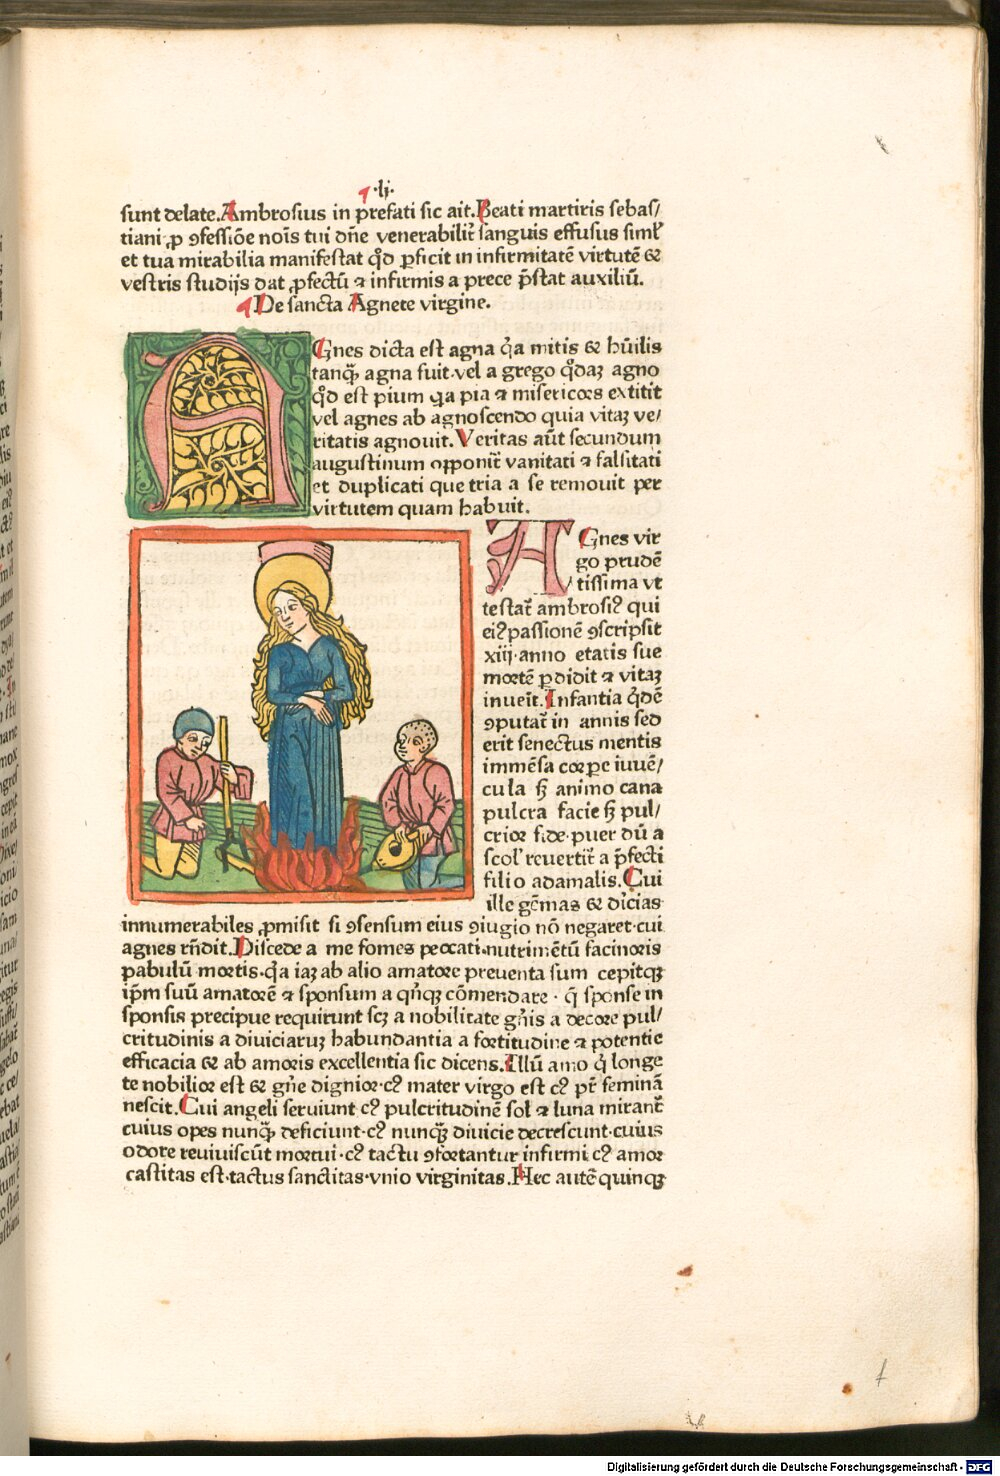 ·lj·
sunt delate. Ambrosius in prefati sic ait. Beati martiris sebas/
tiani ꝓ ꝯfessiōe noīs tui dn̄e venerabilit᷑ sanguis effusus siml̛
et tua mirabilia manifestat qd̛ ꝑficit in infirmitatē virtutē &
vestris studijs dat ꝓfectū ⁊ infirmis a prece p̄stat auxiliū.
De sancta Agnete virgine.
AGnes dicta est agna q̇a mitis & hūilis
tanqꝫ agna fuit. vel a grego qd̛aꝫ agno
qd̛ est pium q̇a pia ⁊ misericors extitit
vel agnes ab agnoscendo quia vitaꝫ ve/
ritatis agnouit. Veritas aūt secundum
augustinum opponit᷑ vanitati ⁊ falsitati
et duplicati que tria a se remouit per
virtutem quam habuit.
AGnes vir
go prudē
tissima vt
testat᷑ ambrosiꝰ qui
eiꝰ passionē ꝯscripsit
xiij· anno etatis sue
mortē ꝑdidit ⁊ vitaꝫ
inueīt. Infantia q̇dē
ꝯputat᷑ in annis sed
erit senectus mentis
immēsa corpe iuuē/
cula sꝫ animo cana
pulcra facie sꝫ pul/
crior fide· puer dū a
scol̛ reuertit᷑ a p̄fecti
filio adamalis. Cui
ille gēmas & dicias
innumerabiles ꝓmisit si ꝯsensum eius ꝯiugio nō negaret· cui
agnes rn̄dit. Discede a me fomes peccati· nutrimētū facinoris
pabulū mortis· q̇a iaꝫ ab alio amatore preuenta sum cepitqꝫ
ip̄m suū amatorē ⁊ sponsum a qn̛qꝫ cōmendare · q̄ sponse in
sponsis precipue requirunt scꝫ a nobilitate gn̄is a decore pul/
critudinis a diuiciaruꝫ habundantia a fortitudine ⁊ potentie
efficacia & ab amoris excellentia sic dicens. Illū amo q̇ longe
te nobilior est & gn̄e dignior· cꝰ mater virgo est cꝰ pr̄ feminā
nescit. Cui angeli seruiunt cꝰ pulcritudinē sol ⁊ luna mirant᷑
cuius opes nunqꝫ deficiunt· cꝰ nunqꝫ diuicie decrescunt· cuius
odore reuiuiscūt mortui· cꝰ tactu ꝯfortantur infirmi cꝰ amor
castitas est· tactus sanctitas· vnio virginitas. Hec autē quinqꝫ
Digitalisierung gefördert durch die Deutsche Forschungsgemeinschaft - DFG